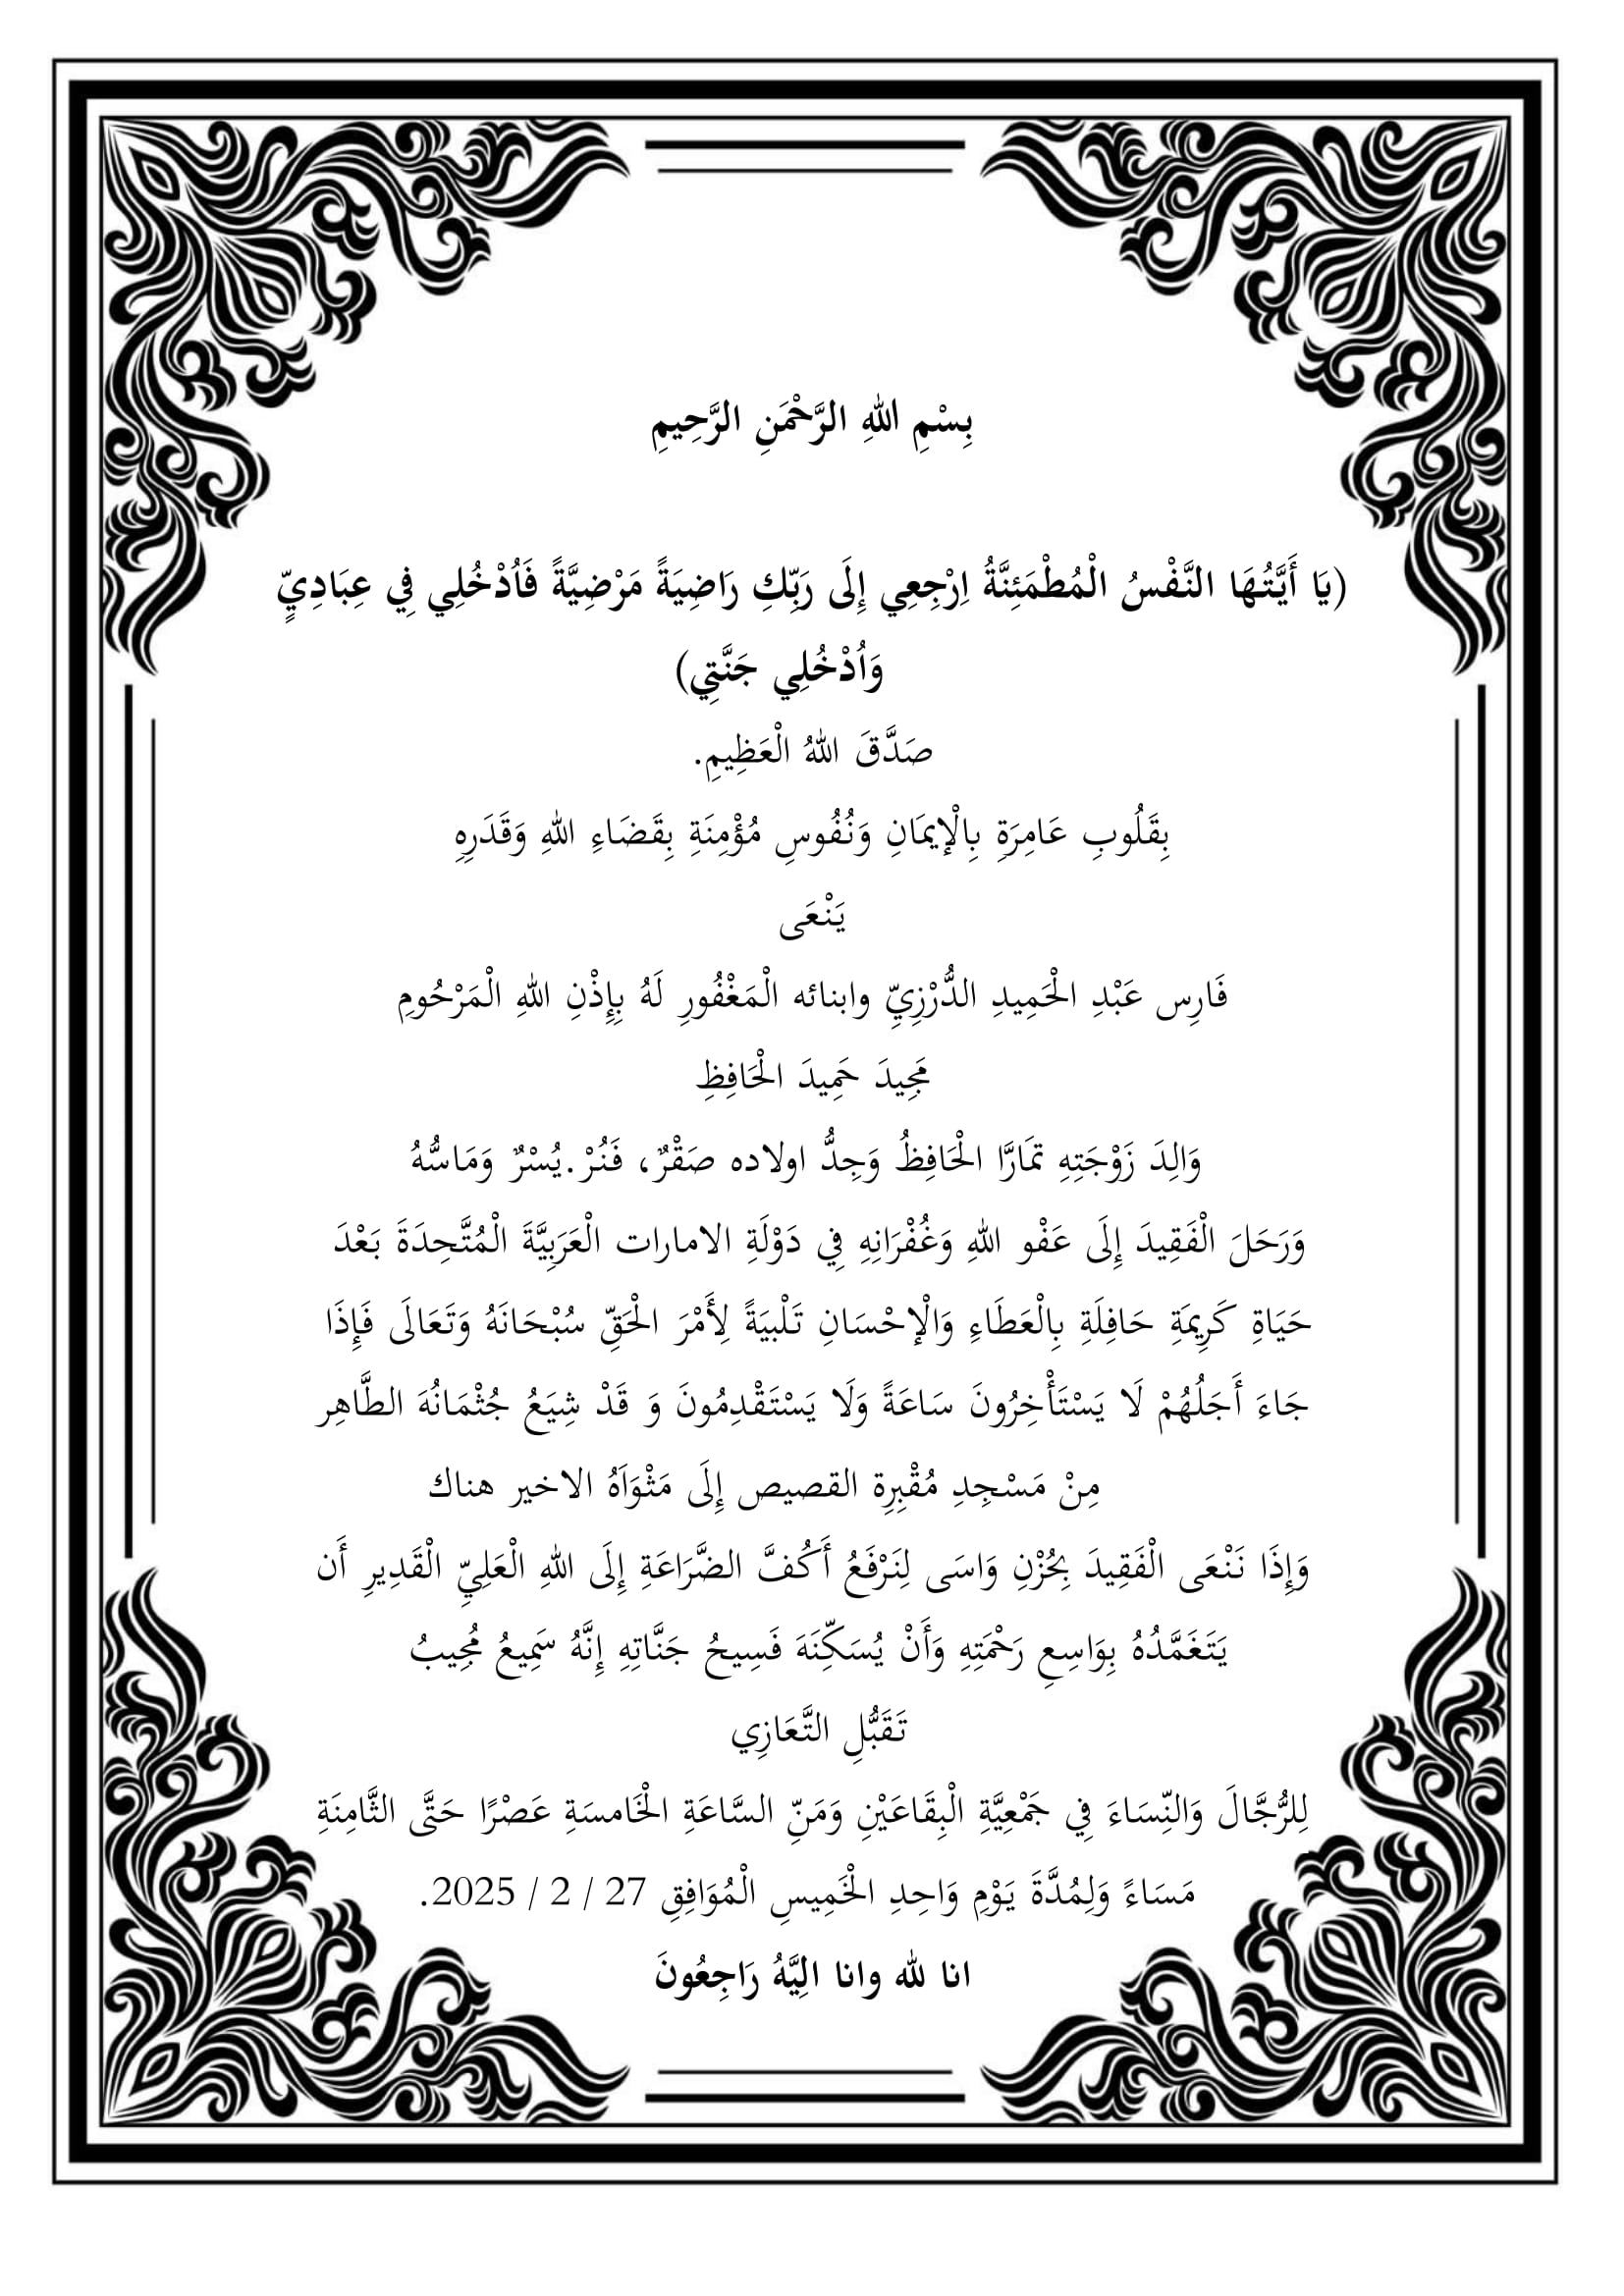 بِسْمِ اللهِ الرَّحْمَنِ الرَّحِيمِ
(يَا أَيَّتُهَا النَّفْسُ الْمُطْمَئِنَّةُ اِرْجِعِي إِلَى رَبِّكِ رَاضِيَةً مَرْضِيَّةً فَاُدْخُلِي فِي عِبَادِيٍّ
وَاُدْخُلِي جَنَّتِي)
صَدَّقَ اللهُ الْعَظِيمِ.
بِقَلُوبِ عَامِرَةِ بِالْإيمَانِ وَنُفُوسِ مُؤْمِنَةِ بِقَضَاءِ اللهِ وَقَدَرِهِ
يَنْعَى
فَارِس عَبْدِ الْحَمِيدِ الدُّرْزِيِّ وابنائه الْمَغْفُورِ لَهُ بِإِذْنِ اللهِ الْمَرْحُومِ
مَجِيدَ حَمِيدَ الْحَافِظِ
وَالِدَ زَوْجَتِهِ تمَارَّا الْحَافِظُ وَجِدُّ اولاده صَقْرٌ، فَنُرْ.يُسْرٌ وَمَاسُّهُ
وَرَحَلَ الْفَقِيدَ إِلَى عَفْو اللهِ وَغُفْرَانِهِ فِي دَوْلَةِ الامارات الْعَرَبِيَّةَ الْمُتَّحِدَةَ بَعْدَ
حَيَاةِ كَرِيمَةِ حَافِلَةِ بِالْعَطَاءِ وَالْإحْسَانِ تَلْبيَةً لِأَمْرَ الْحَقِّ سُبْحَانَهُ وَتَعَالَى فَإِذَا
جَاءَ أَجَلُهُمْ لَا يَسْتَأْخِرُونَ سَاعَةً وَلَا يَسْتَقْدِمُونَ وَ قَدْ شِيَعُ جُثْمَانُهَ الطَّاهِر
مِنْ مَسْجِدِ مُقْبِرِة القصيص إِلَى مَثْوَاَهُ الاخير هناك
وَإِذَا نَنْعَى الْفَقِيدَ بِحُزْنِ وَاسَى لِنَرْفَعُ أَكُفَّ الضَّرَاعَةِ إِلَى اللهِ الْعَلِيِّ الْقَدِيرِ أَن
يَتَغَمَّدُهُ بِوَاسِعِ رَحْمَتِهِ وَأَنْ يُسَكِّنَهَ فَسِيحُ جَنَّاتِهِ إِنَّهُ سَمِيعُ مُجِيبُ
تَقَبُّلِ التَّعَازِي
لِلرُّجَّالَ وَالنِّسَاءَ فِي جَمْعِيَّةِ الْبِقَاعَيْنِ وَمَنِّ السَّاعَةِ الْخَامسَةِ عَصْرًا حَتَّى الثَّامِنَةِ
مَسَاءً وَلِمُدَّةَ يَوْمِ وَاحِدِ الْخَمِيسِ الْمُوَافِقِ 27 / 2 / 2025.
انا لله وانا الِيَّهُ رَاجِعُونَ